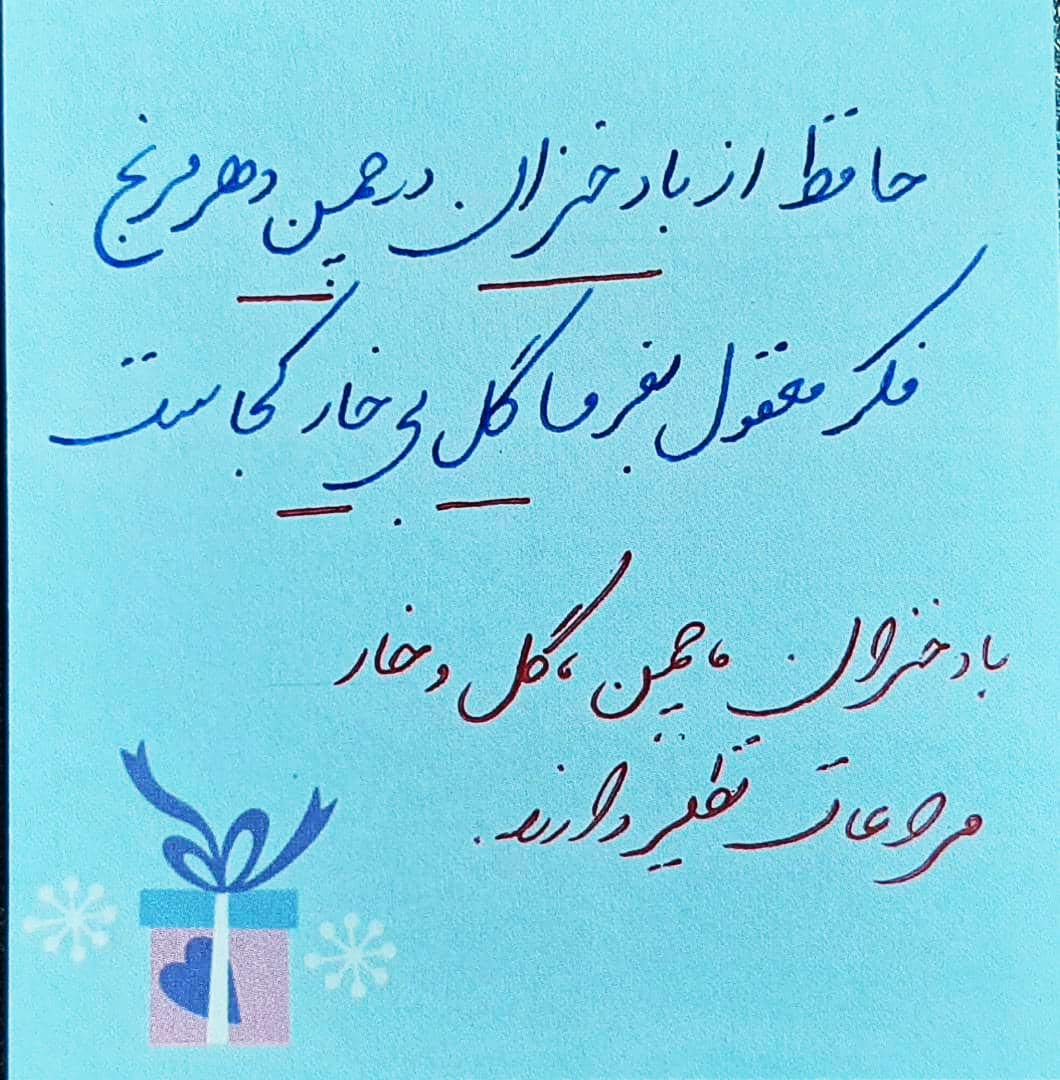 حافظ از باد خزان در چمن دهر مرنج
فکر معقول بفرما گل بی خار کجاست
باد خزان ، چمن ، گل و خار
مراعات نظیر دارند .